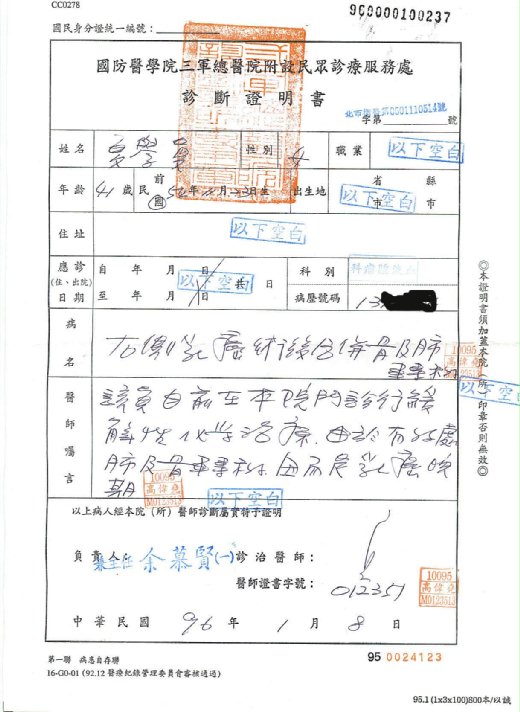 CC0278
960000100237
國民身分證統一編號：
國防醫學院三軍總醫院附設民眾診療服務處
診斷證明書
字第 號
姓名 性別 女 職業 以下空白
年齡 41 歲 民 前 國 年 月 日生 出生地 省 市 縣 市 以下空白
住址 以下空白
應診 (住、出院) 日期 自 年 月 日 至 年 月 日 共 日 以下空白
科別
病歷號碼
病名
右側乳癌術後合併骨及肺
轉移
醫師囑言
該員目前在本院門診行緩
解性化學治療，由於有好處
肺及骨轉移，因而是乳癌晚
期
10095
高偉堯
M0123513
以下空白
以上病人經本院（所）醫師診斷屬實特予證明
負責人 兼主任 余慕賢(一) 診治醫師：
醫師證書字號： 012351
10095
高偉堯
M0123513
中華民國 96 年 1 月 8 日
◎本證明書須加蓋本院（所）印章否則無效◎
以下空白
第一聯 病患自存聯
95 0024123
16-G0-01 (92.12 醫療紀錄管理委員會審核通過)
95.1 (1x3x100)800本/以誠